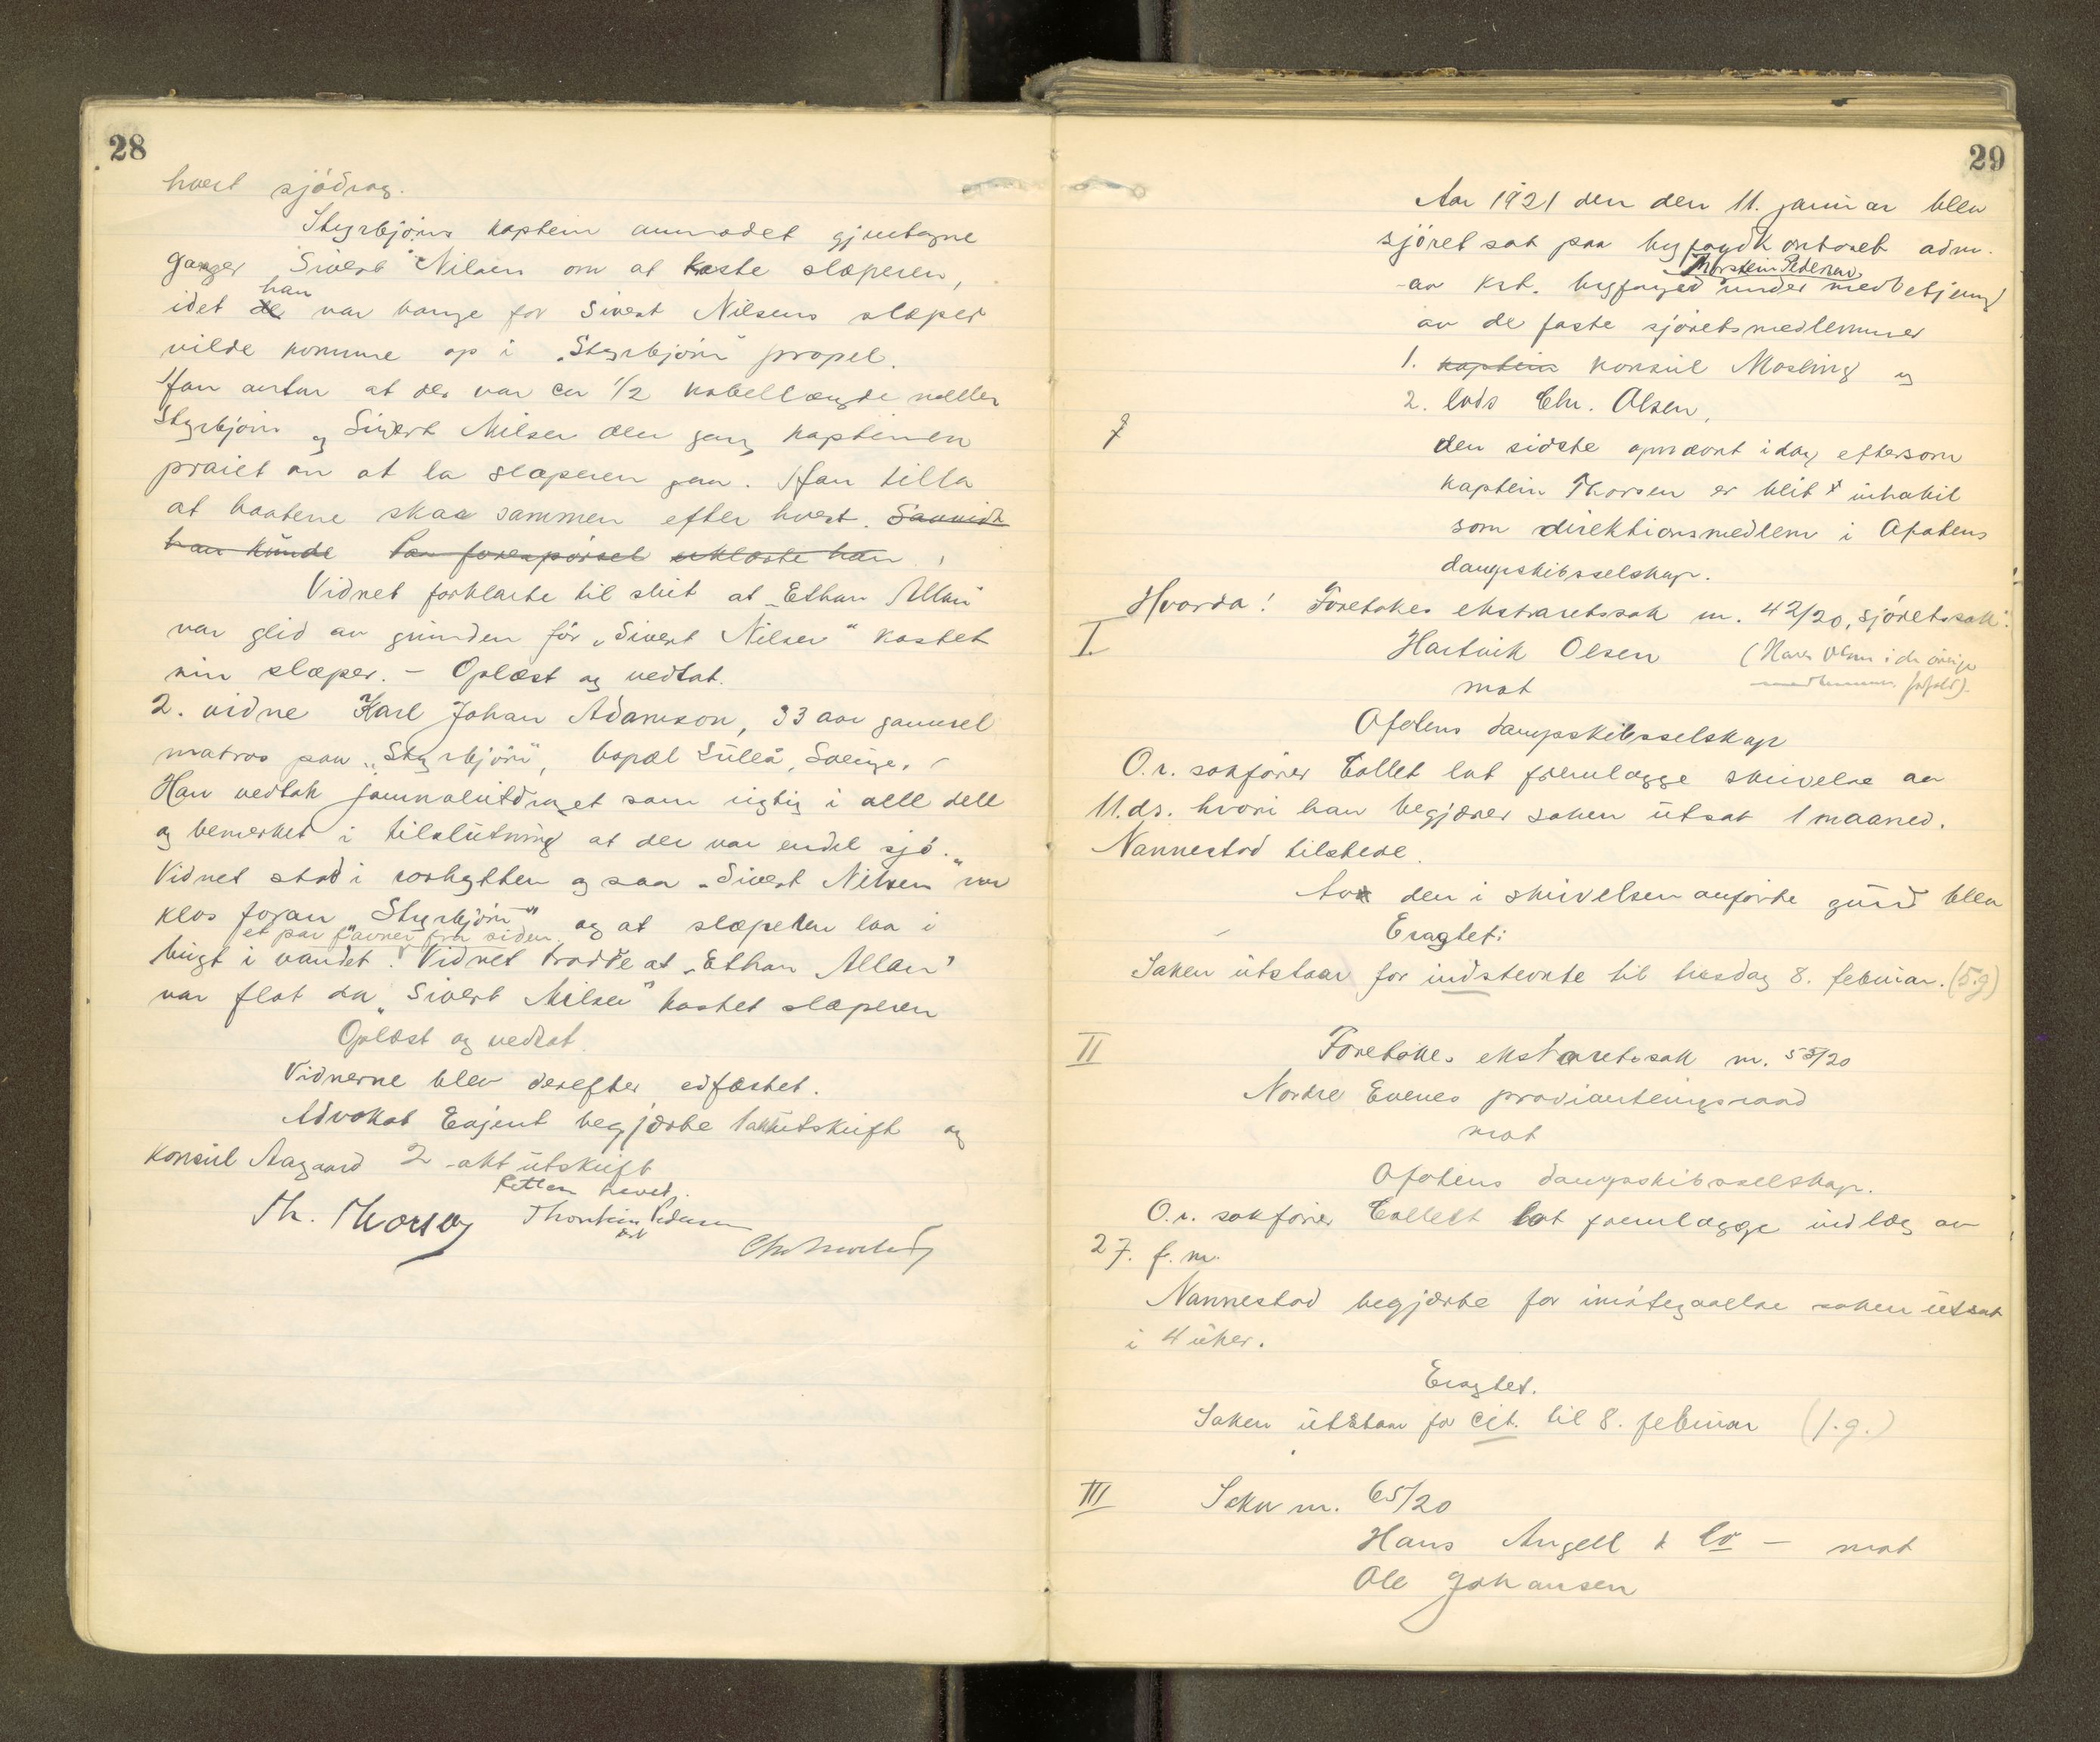 28
hvert sjödrag.
Styrbjörns kaptein anmodet gjentagne
ganger "Sivert" Nilsen om at kaste slæperen,
han
idet de var bange for Sivert Nilsens slæper
vilde komme op i "Styrbjörn" propel.
Han antar at der var ca 1/2 kabellængde mellem
Styrbjörn og Sivert Nilsen den gang kapteinen
praiet om at la slæperen gaa. Han tilla
at baatene skaa sammen efter hvert. Saavidt
han kunde Paa forespörsel erklærte han
Vidnet forklarte til slut at "Ethan Allan"
var glid av grunden för "Sivert Nilsen" kastet
sin slæper. - Oplæst og vedtat.
2. vidne Karl Johan Adamson, 33 aar gammel
matros paa "Styrbjörn", bopæl Luleå, Sverige.
Han vedtok journalutdraget som rigtig i alle dele
og bemerket i tilslutning at der var endel sjö.
Vidnet stod i rorhytten og saa "Sivert Nilsen" var
klos foran "Styrbjörn" og at slæperen laa i
et par favner fra siden.
bugt i vandet. Vidnet trodde at "Ethan Allan"
var flot da "Sivert Nilsen" kastet slæperen
Oplæst og vedtat.
Vidnerne blev derefter edfæstet.
Advokat begjærte 1 aktutskrift og
konsul Aagaard 2 aktutskrift
Retten hevet.
Th. Thorsen Thorstein Pedersen
29
Aar 1921 den den 11. januar blev
sjöret sat paa byfogdkontoret adm.
Thorstein Pedersen
av kst. byfoged under medbetjening
av de faste sjöretsmedlemmer
1. kaptein konsul Mosling og
2. lods Chr. Olsen,
den sidste opnævnt idag eftersom
kaptein Thorsen er blit inhabil
som direktionsmedlem i Ofotens
dampskibsselskap.
Hvorda! Foretokes ekstraretssak nr. 42/20, sjöretssak:
I.
Hartvik Olsen (Hans Olsen i de övrige
mot
Ofotens dampskibsselskap
O.r. sakförer Collet lot fremlægge skrivelse av
11. ds. hvori han begjærer saken utsat 1 maaned.
Nannestad tilstede.
Av den i skrivelsen anförte grund blev
Eragtet:
Saken utstaar for indstevnte til tirsdag 8. februar. (5.g)
II
Foretokes ekstraretssak nr. 55/20
Nordre Evenes provianteringsraad
mot
Ofotens dampskibsselskap.
O.r. sakförer Collett lot fremlægge indlæg av
27. f.m.
Nannestad begjærte for imötegaaelse saken utsat
i 4 uker.
Eragtet.
Saken utstaar for cit. til 8. februar (1.g.)
III
Sak nr. 65/20
Hans Angell & Co - mot
Ole Johansen